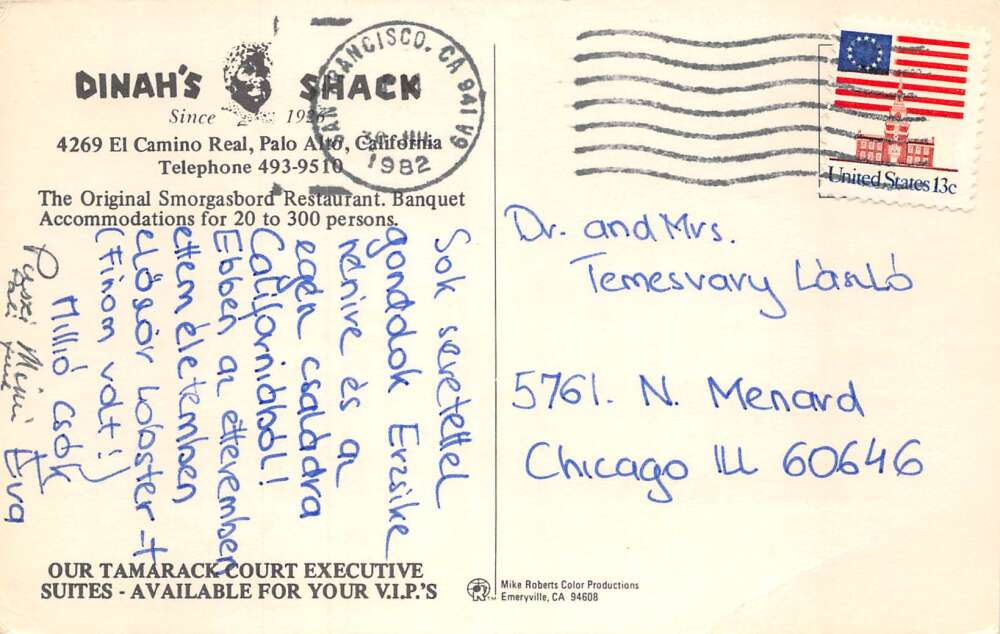 DINAH'S SHACK
Since 1926
4269 El Camino Real, Palo Alto, California
Telephone 493-9510
The Original Smorgasbord Restaurant. Banquet
Accommodations for 20 to 300 persons.
SAN FRANCISCO, CA 941
1982
United States 13c
Sok seretettel
gondolok Erzsike
nénire és a
egén családra
Californiából!
Ebben az étteremben
ettem életemben
először lobster-t
(Finom volt!)
Millió csók
Éva
Puszi Mimi
Dr. and Mrs.
Temesvary László
5761. N. Menard
Chicago Ill 60646
OUR TAMARACK COURT EXECUTIVE
SUITES - AVAILABLE FOR YOUR V.I.P.'S
Mike Roberts Color Productions
Emeryville, CA 94608